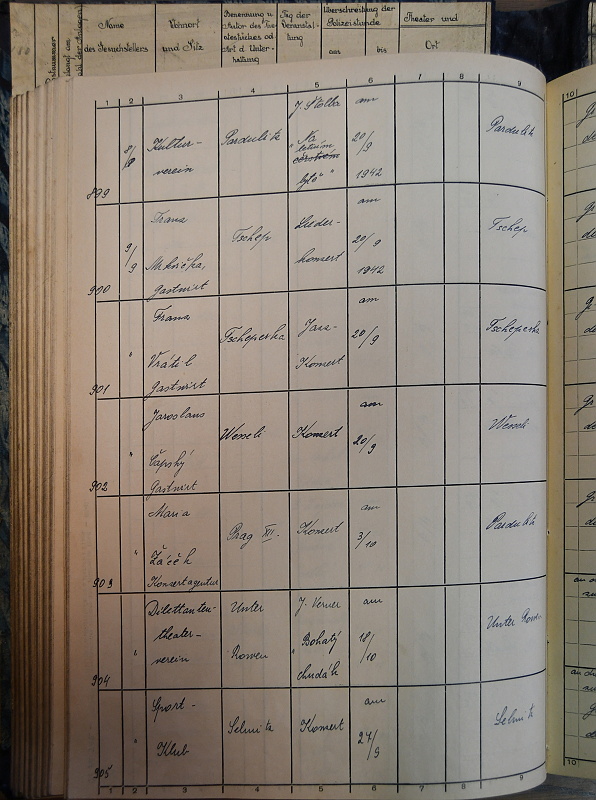 Name
des Gesuchstellers
Wohnort
und Sitz
Benennung u.
Autor des The-
aterstückes od.
Art d. Unter-
haltung
Tag der
Veranstal-
tung
Überschreitung der
Polizeistunde
aus
bis
Theater und
Ort
1 2 3 4 5 6 7 8 9 10
899 8/9 Kultur-
verein
Pardubitz
J. Štolba
"Na
letním
bytě"
am
20/9
1942
Pardubitz
900 9/9 Franz
Mrkvička,
Gastwirt
Tschep
Lieder-
konzert
am
20/9
1942
Tschep
901 " Franz
Vrátil
Gastwirt
Tscheperka
Jazz-
Konzert
am
20/9
Tscheperka
902 " Jaroslaus
Čapský
Gastwirt
Wesseli
Konzert
am
20/9
Wesseli
903 " Maria
Žáček
Konzertagentur
Prag XII.
Konzert
am
3/10
Pardubitz
904 " Dilettanten-
theater-
verein
Unter
Rowen
J. Verner
"Bohatý
chudák
am
18/10
Unter Rowen
905 " Sport-
Klub
Selmitz
Konzert
am
27/9
Selmitz
1 2 3 4 5 6 7 8 9 10